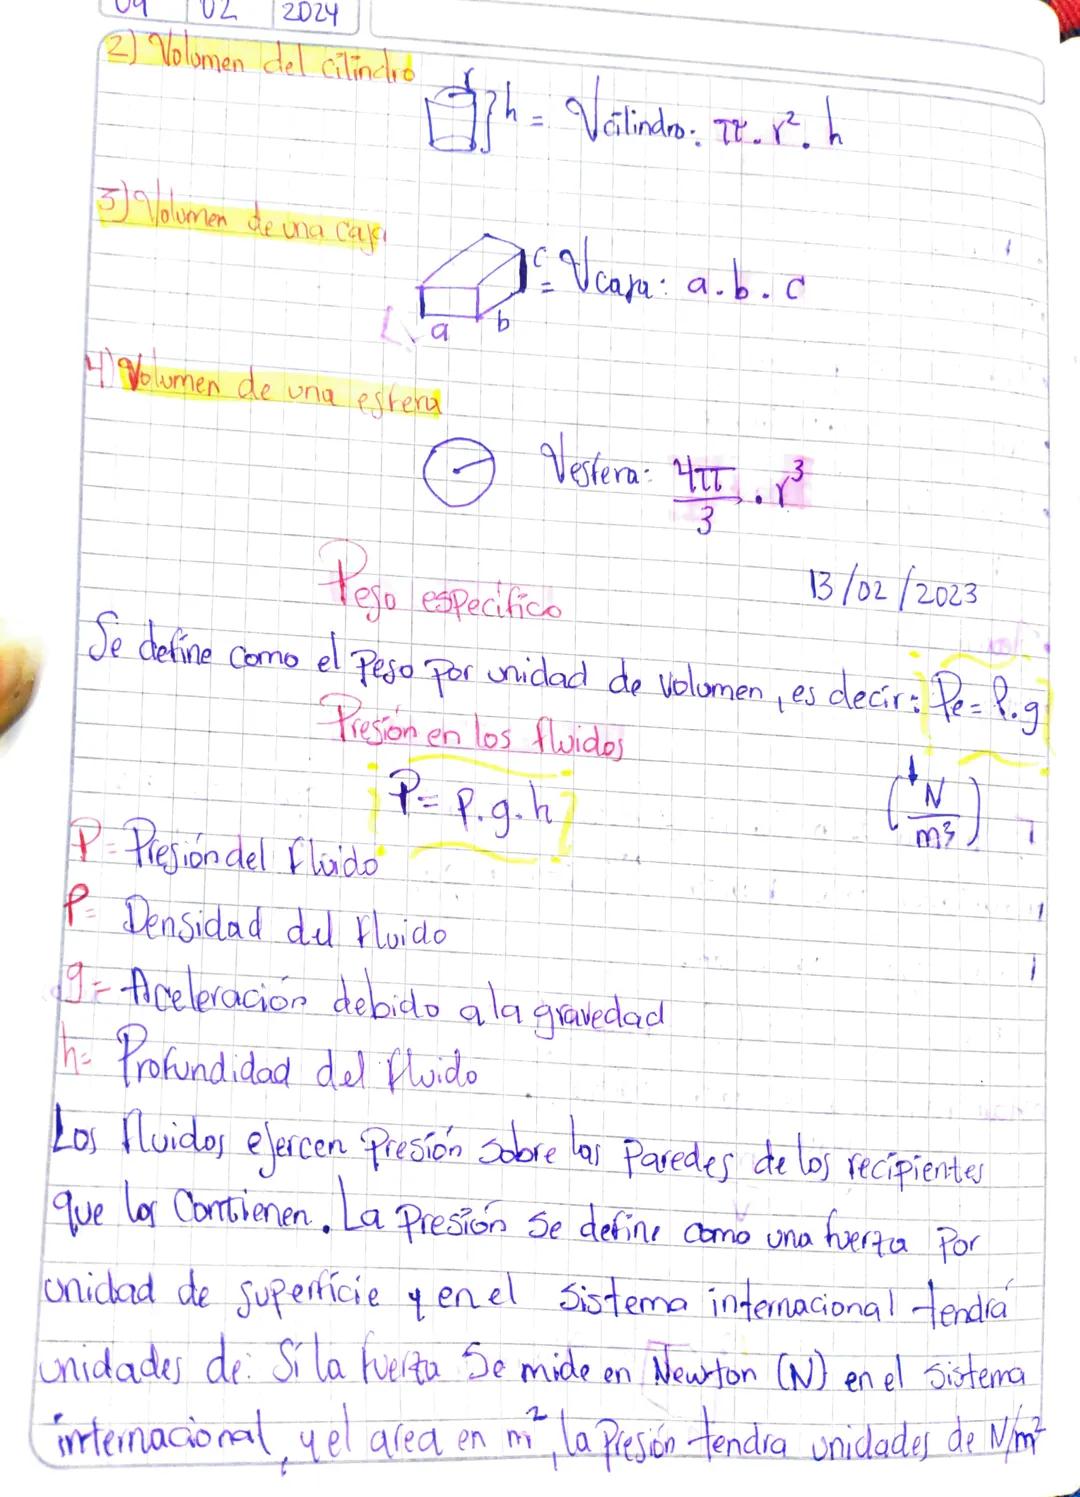 09 02 2024
2) Volumen del cilindro
r
h = Vcilindro: π. r². h
3) Volumen de una caja
c = Vcaja: a.b.c
a b
4) Volumen de una esfera
Vesfera: 4π/3 . r³
Peso especifico 13/02/2023
Se define como el Peso por unidad de volumen, es decir: Pe = ρ.g
Presión en los fluidos
(N/m³)
P = ρ.g.h
P = Presión del fluido
ρ = Densidad del fluido
g = Aceleración debido a la gravedad
h = Profundidad del fluido
Los fluidos ejercen Presión sobre las Paredes de los recipientes
que los Contienen. La Presión se define como una fuerza por
unidad de superficie y en el sistema internacional tendrá
unidades de: Si la fuerza se mide en Newton (N) en el sistema
internacional, y el area en m², la Presión tendra unidades de N/m²